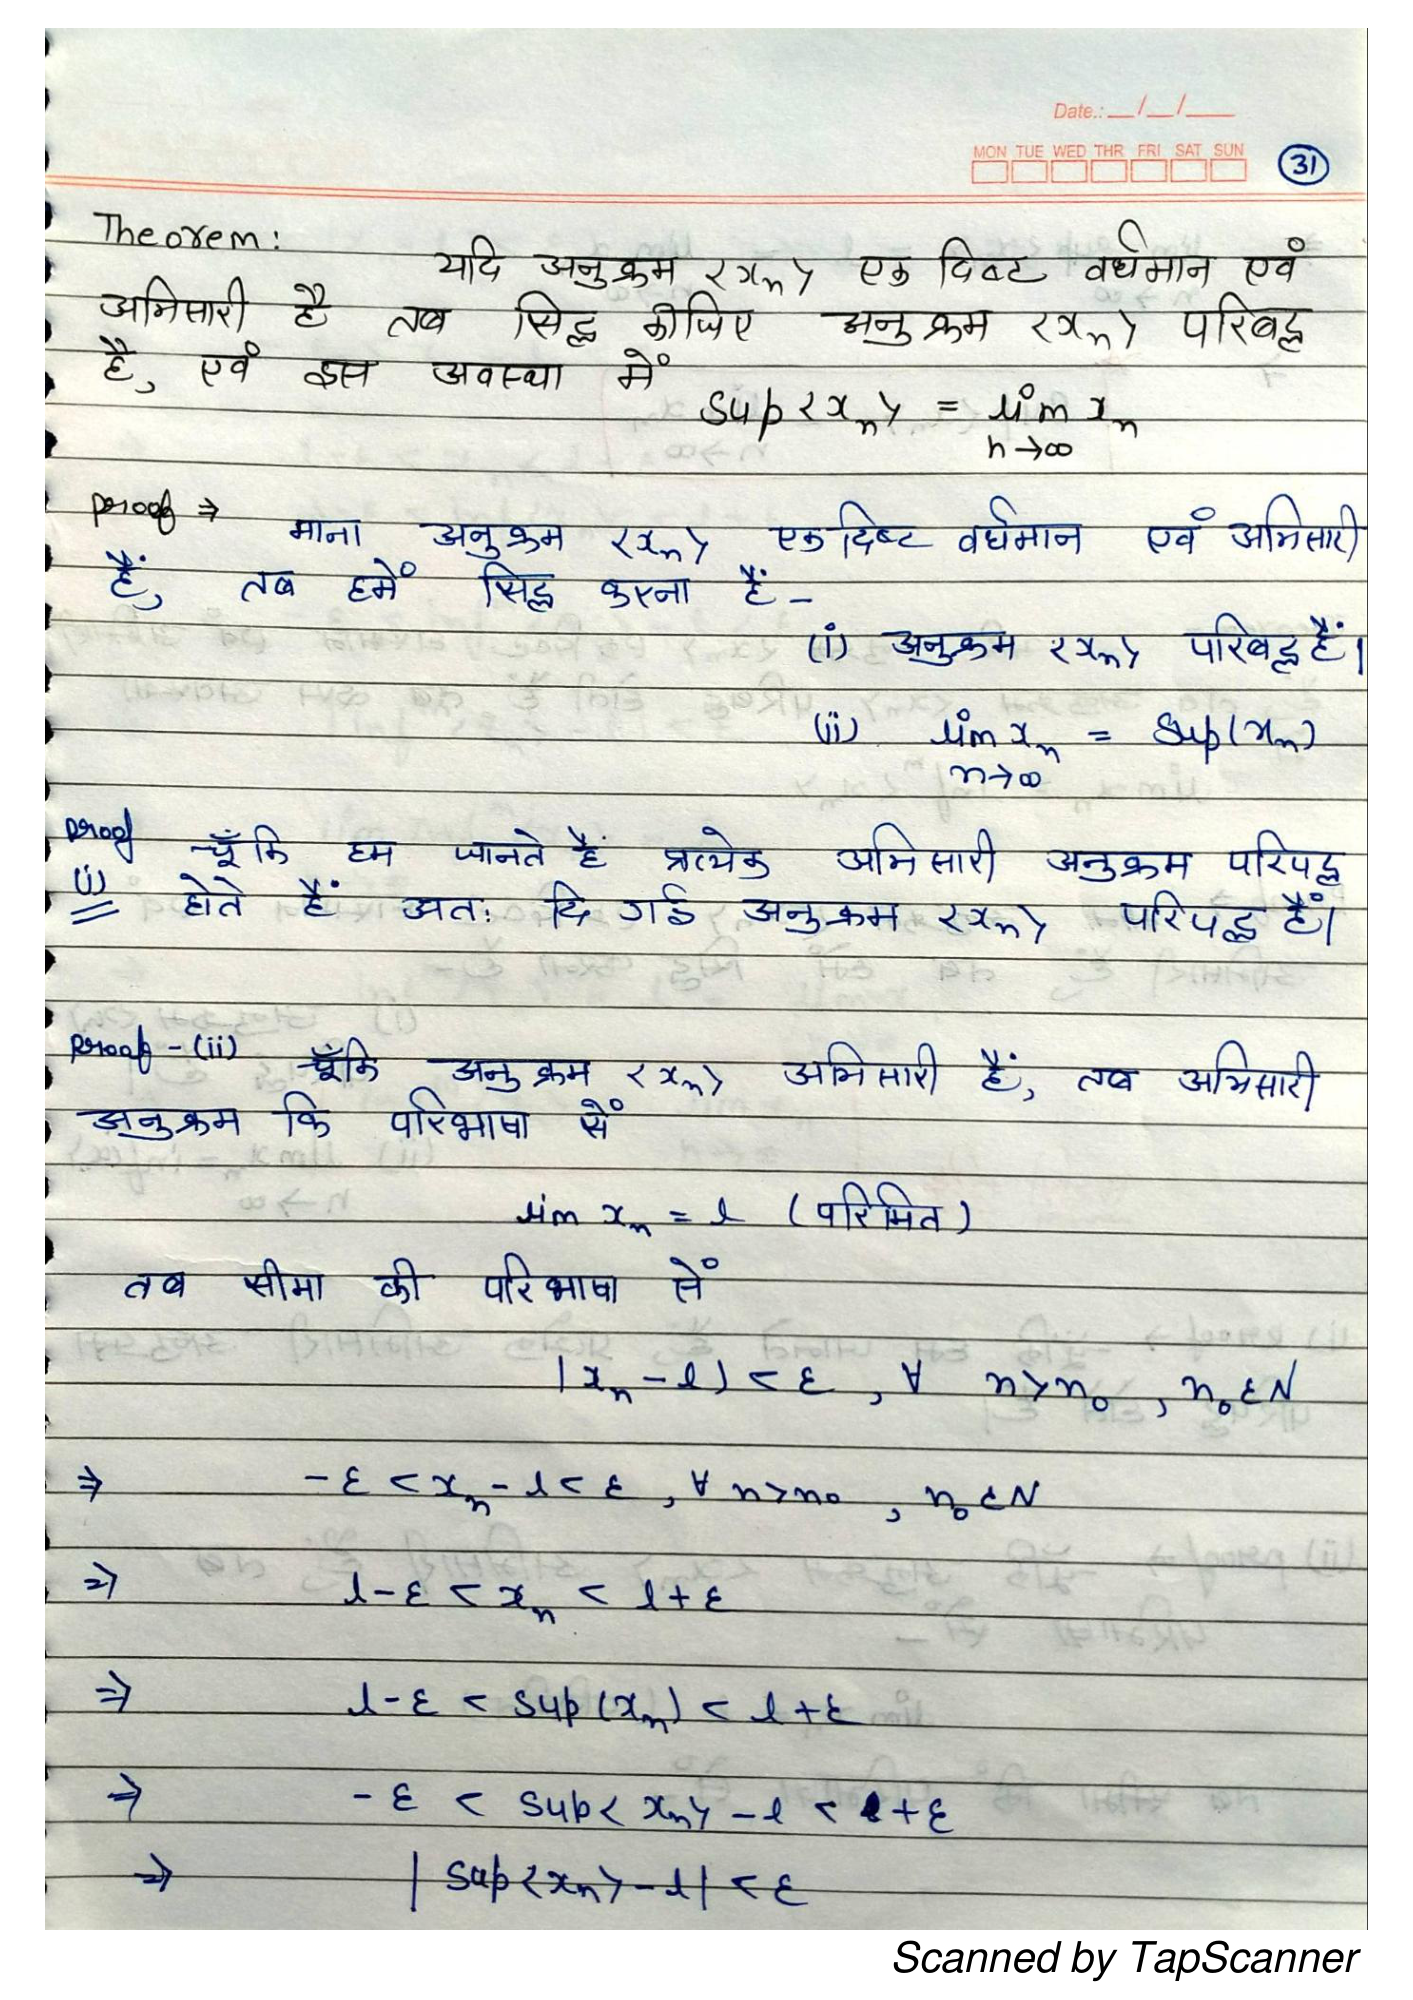 Date.: __/__/____
MON TUE WED THR FRI SAT SUN
31
Theorem:
यदि अनुक्रम <xₙ> एक दिष्ट वर्धमान एवं
अभिसारी है तब सिद्ध कीजिए अनुक्रम <xₙ> परिबद्ध
है, एवं इस अवस्था में
Sup<xₙ> = lim xₙ
n→∞
Proof ⇒ माना अनुक्रम <xₙ> एकदिष्ट वर्धमान एवं अभिसारी
हैं, तब हमें सिद्ध करना हैं -
(i) अनुक्रम <xₙ> परिबद्ध हैं।
(ii) lim xₙ = Sup(xₙ)
n→∞
Proof चूँकि हम जानते हैं प्रत्येक अभिसारी अनुक्रम परिपद्ध
(i) होते हैं अत: दि गई अनुक्रम <xₙ> परिपद्ध हैं।
Proof-(ii) चूँकि अनुक्रम <xₙ> अभिसारी हैं, तब अभिसारी
अनुक्रम कि परिभाषा सें
lim xₙ = l (परिमित)
तब सीमा की परिभाषा सें
|xₙ - l| < ε, ∀ n>n₀, n₀ ε N
⇒ -ε < xₙ - l < ε, ∀ n>n₀, n₀ ε N
⇒ l-ε < xₙ < l+ε
⇒ l-ε < Sup(xₙ) < l+ε
⇒ -ε < Sup<xₙ> - l < +ε
⇒ |Sup<xₙ> - l| < ε
Scanned by TapScanner